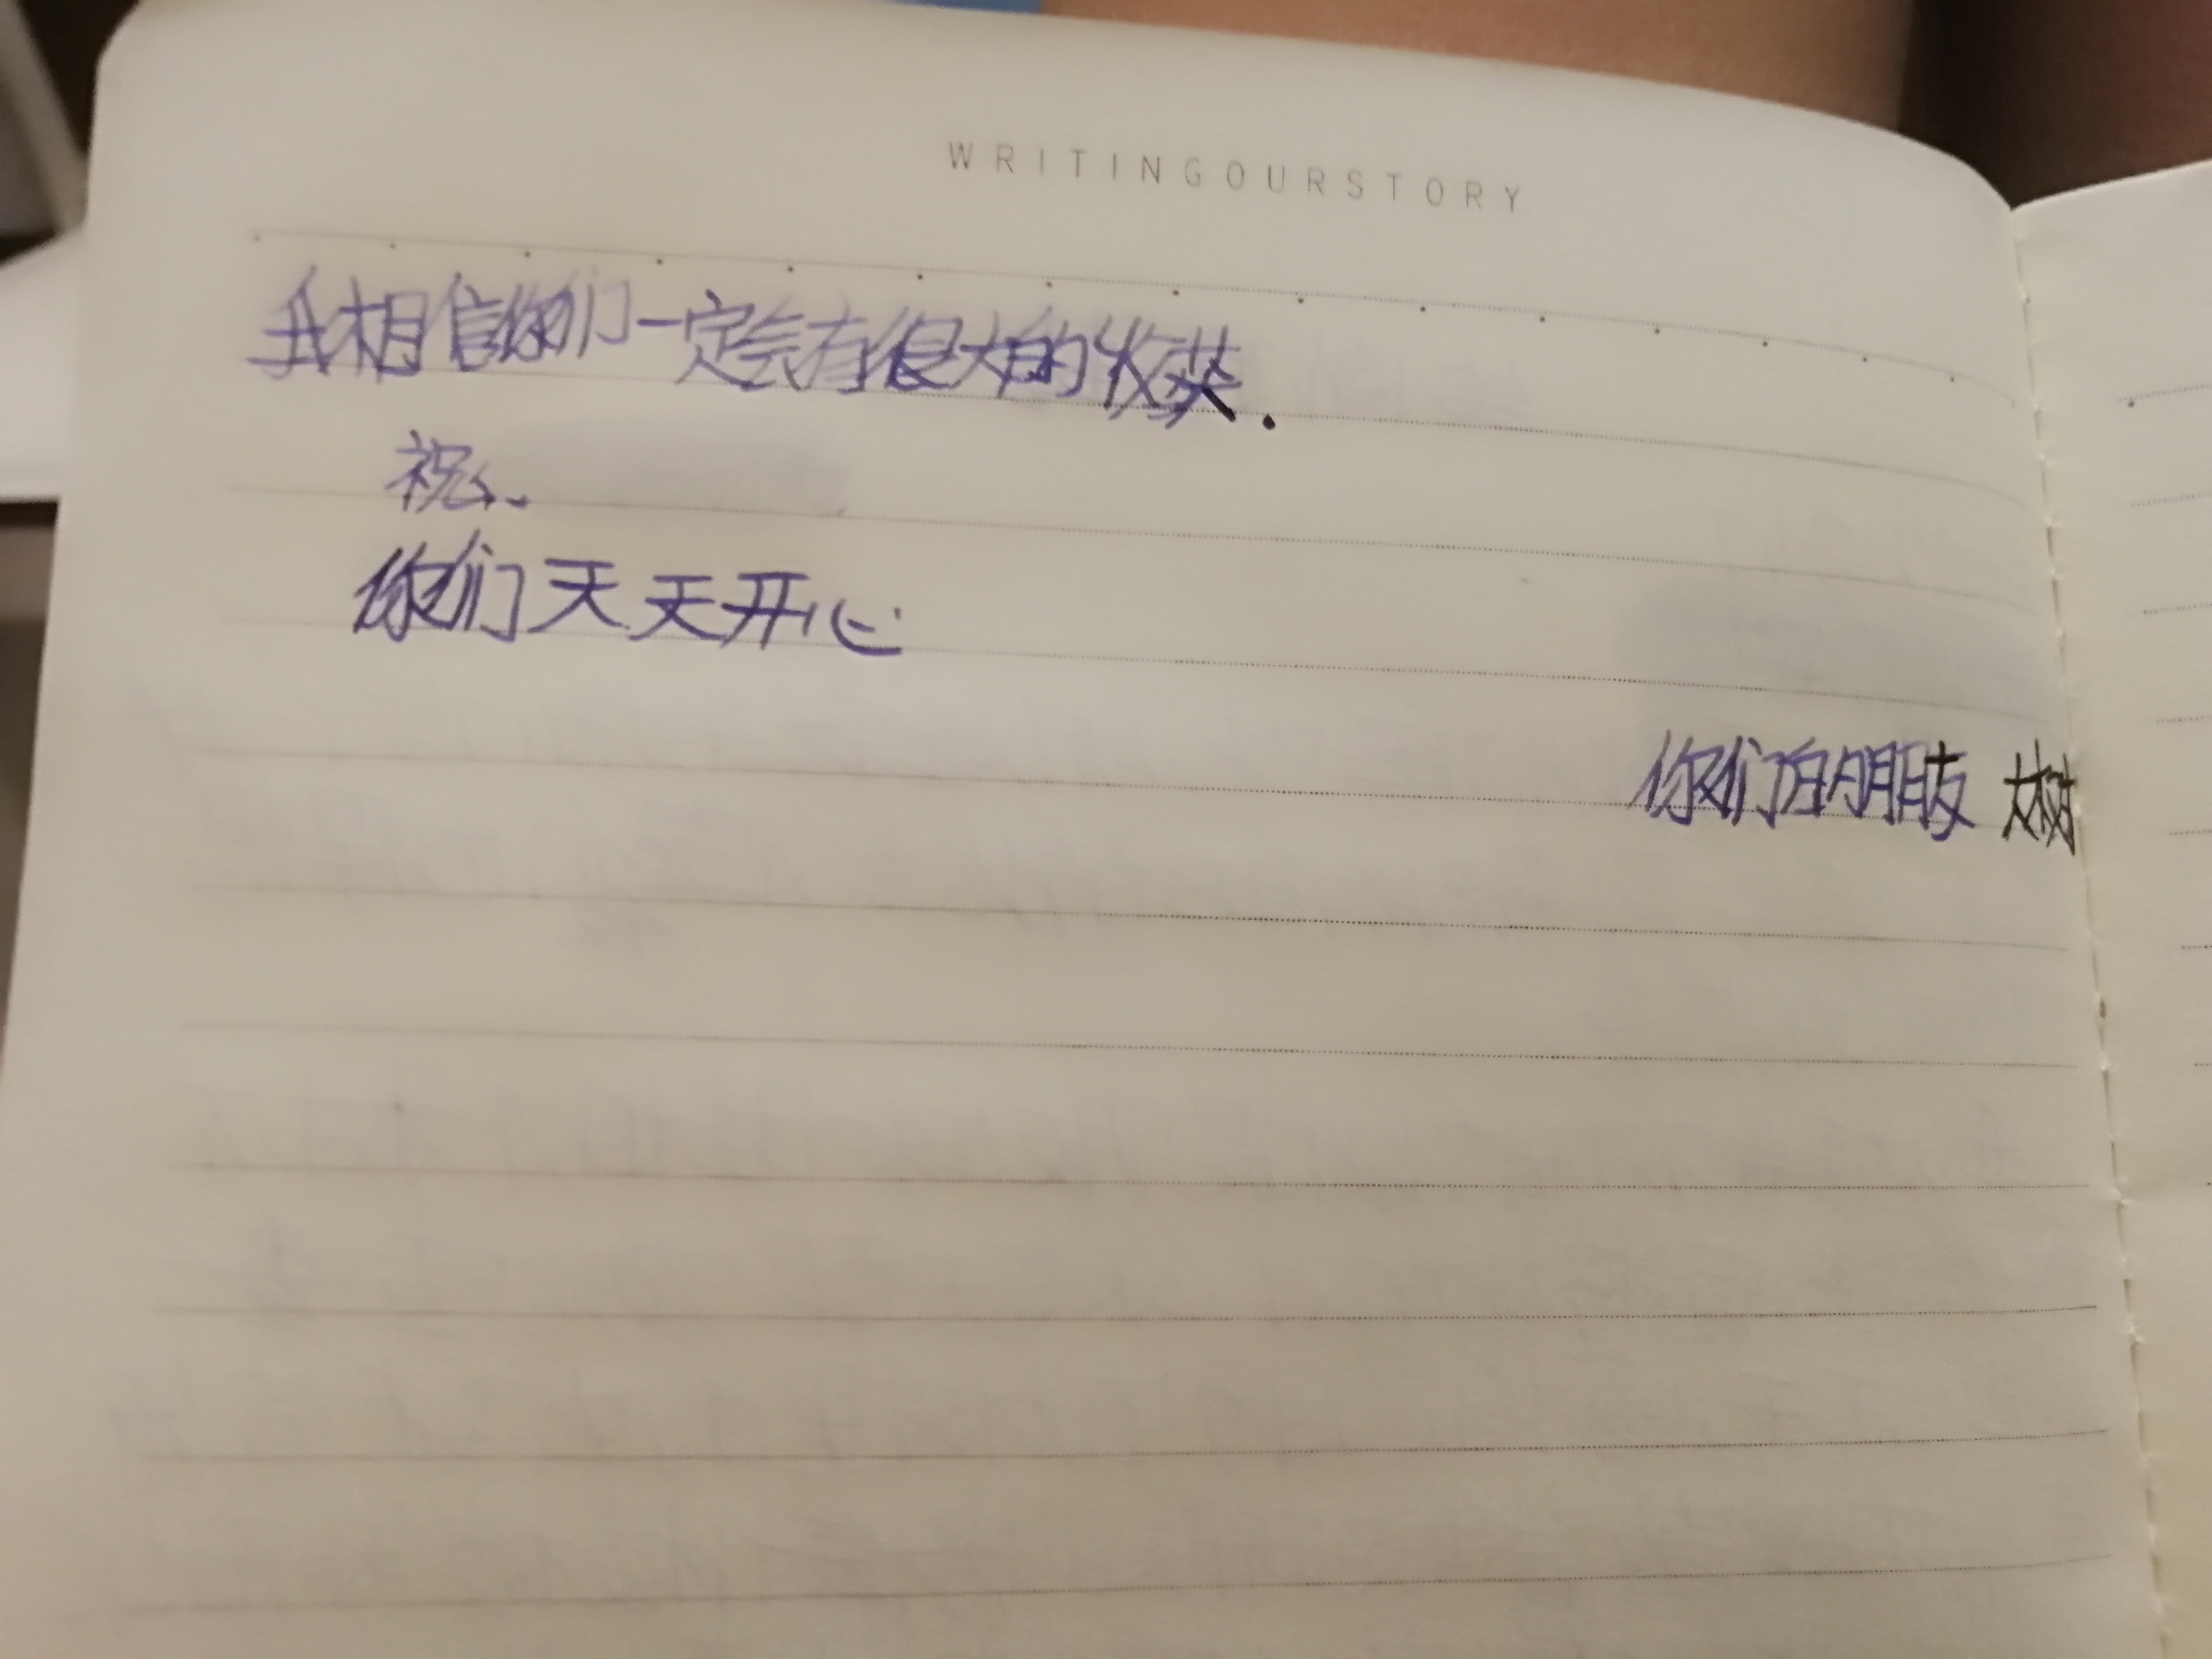 WRITINGOURSTORY
我相信你们一定会有很大的收获.
祝、
你们天天开心
你们的朋友 大树